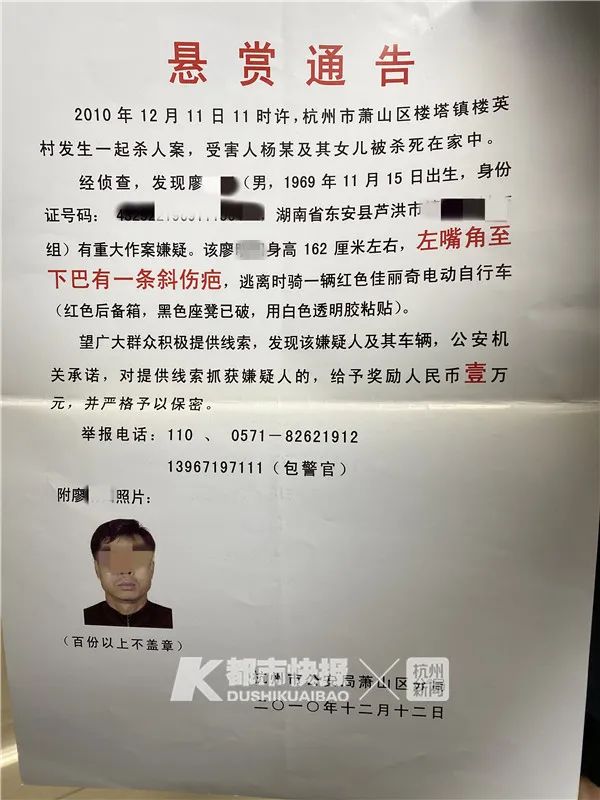 悬赏通告
2010年12月11日11时许,杭州市萧山区楼塔镇楼英
村发生一起杀人案，受害人杨某及其女儿被杀死在家中。
经侦查，发现廖（男，1969年11月15日出生，身份
证号码：，湖南省东安县芦洪市
组）有重大作案嫌疑。该廖身高162厘米左右，左嘴角至
下巴有一条斜伤疤，逃离时骑一辆红色佳丽奇电动自行车
（红色后备箱，黑色座凳已破，用白色透明胶粘贴）。
望广大群众积极提供线索，发现该嫌疑人及其车辆，公安机
关承诺，对提供线索抓获嫌疑人的，给予奖励人民币壹万
元，并严格予以保密。
举报电话：110 、 0571-82621912
13967197111（包警官）
附廖照片：
（百份以上不盖章）
都市快报
DUSHIKUAIBAO
杭州新闻
杭州市公安局萧山区分局
二〇一〇年十二月十二日